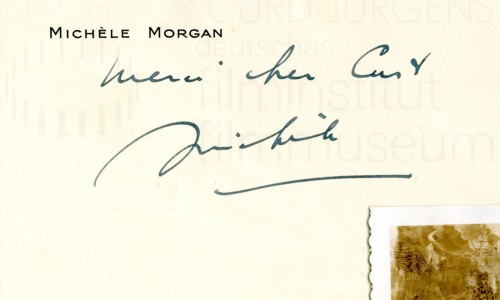 NACHLASS CURD JÜRGENS
MICHÈLE MORGAN
deutsches
Merci cher Curt
filminstitut
filmmuseum
Michèle